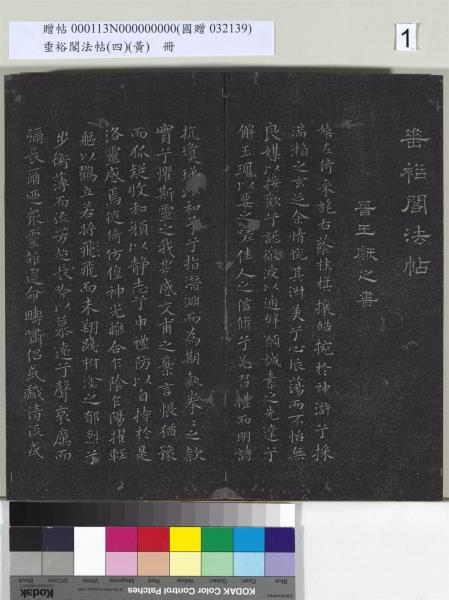 贈帖 000113N000000000(國贈 032139)
垂裕閣法帖(四)(黃) 冊
1
垂裕閣法帖
晉王獻之書
嬉左倚采旄右蔭桂旗攘皓捥於神滸兮採
湍瀨之玄芝余情悅其淑美兮心振蕩而不怡無
良媒以接歡兮託微波以通辭願誠素之先達兮
解玉珮以要之嗟佳人之信脩兮羌習禮而明詩
抗瓊珶以和予兮指潛淵而為期執拳之款
實兮懼斯靈之我欺感交甫之棄言悵猶豫
而狐疑收和顏以靜志兮申禮防以自持於是
洛靈感焉徙倚仿偟神光離合乍陰乍陽擢輕
軀以鶴立若將飛而未翔踐椒塗之郁烈兮
步衡薄而流芳超長吟以慕遠兮聲哀厲而
彌長爾迺衆靈雜遝命疇嘯侶或戲清流或
Kodak
KODAK Color Control Patches
Blue
Cyan
Green
Yellow
Red
Magenta
White
3/Color
Black